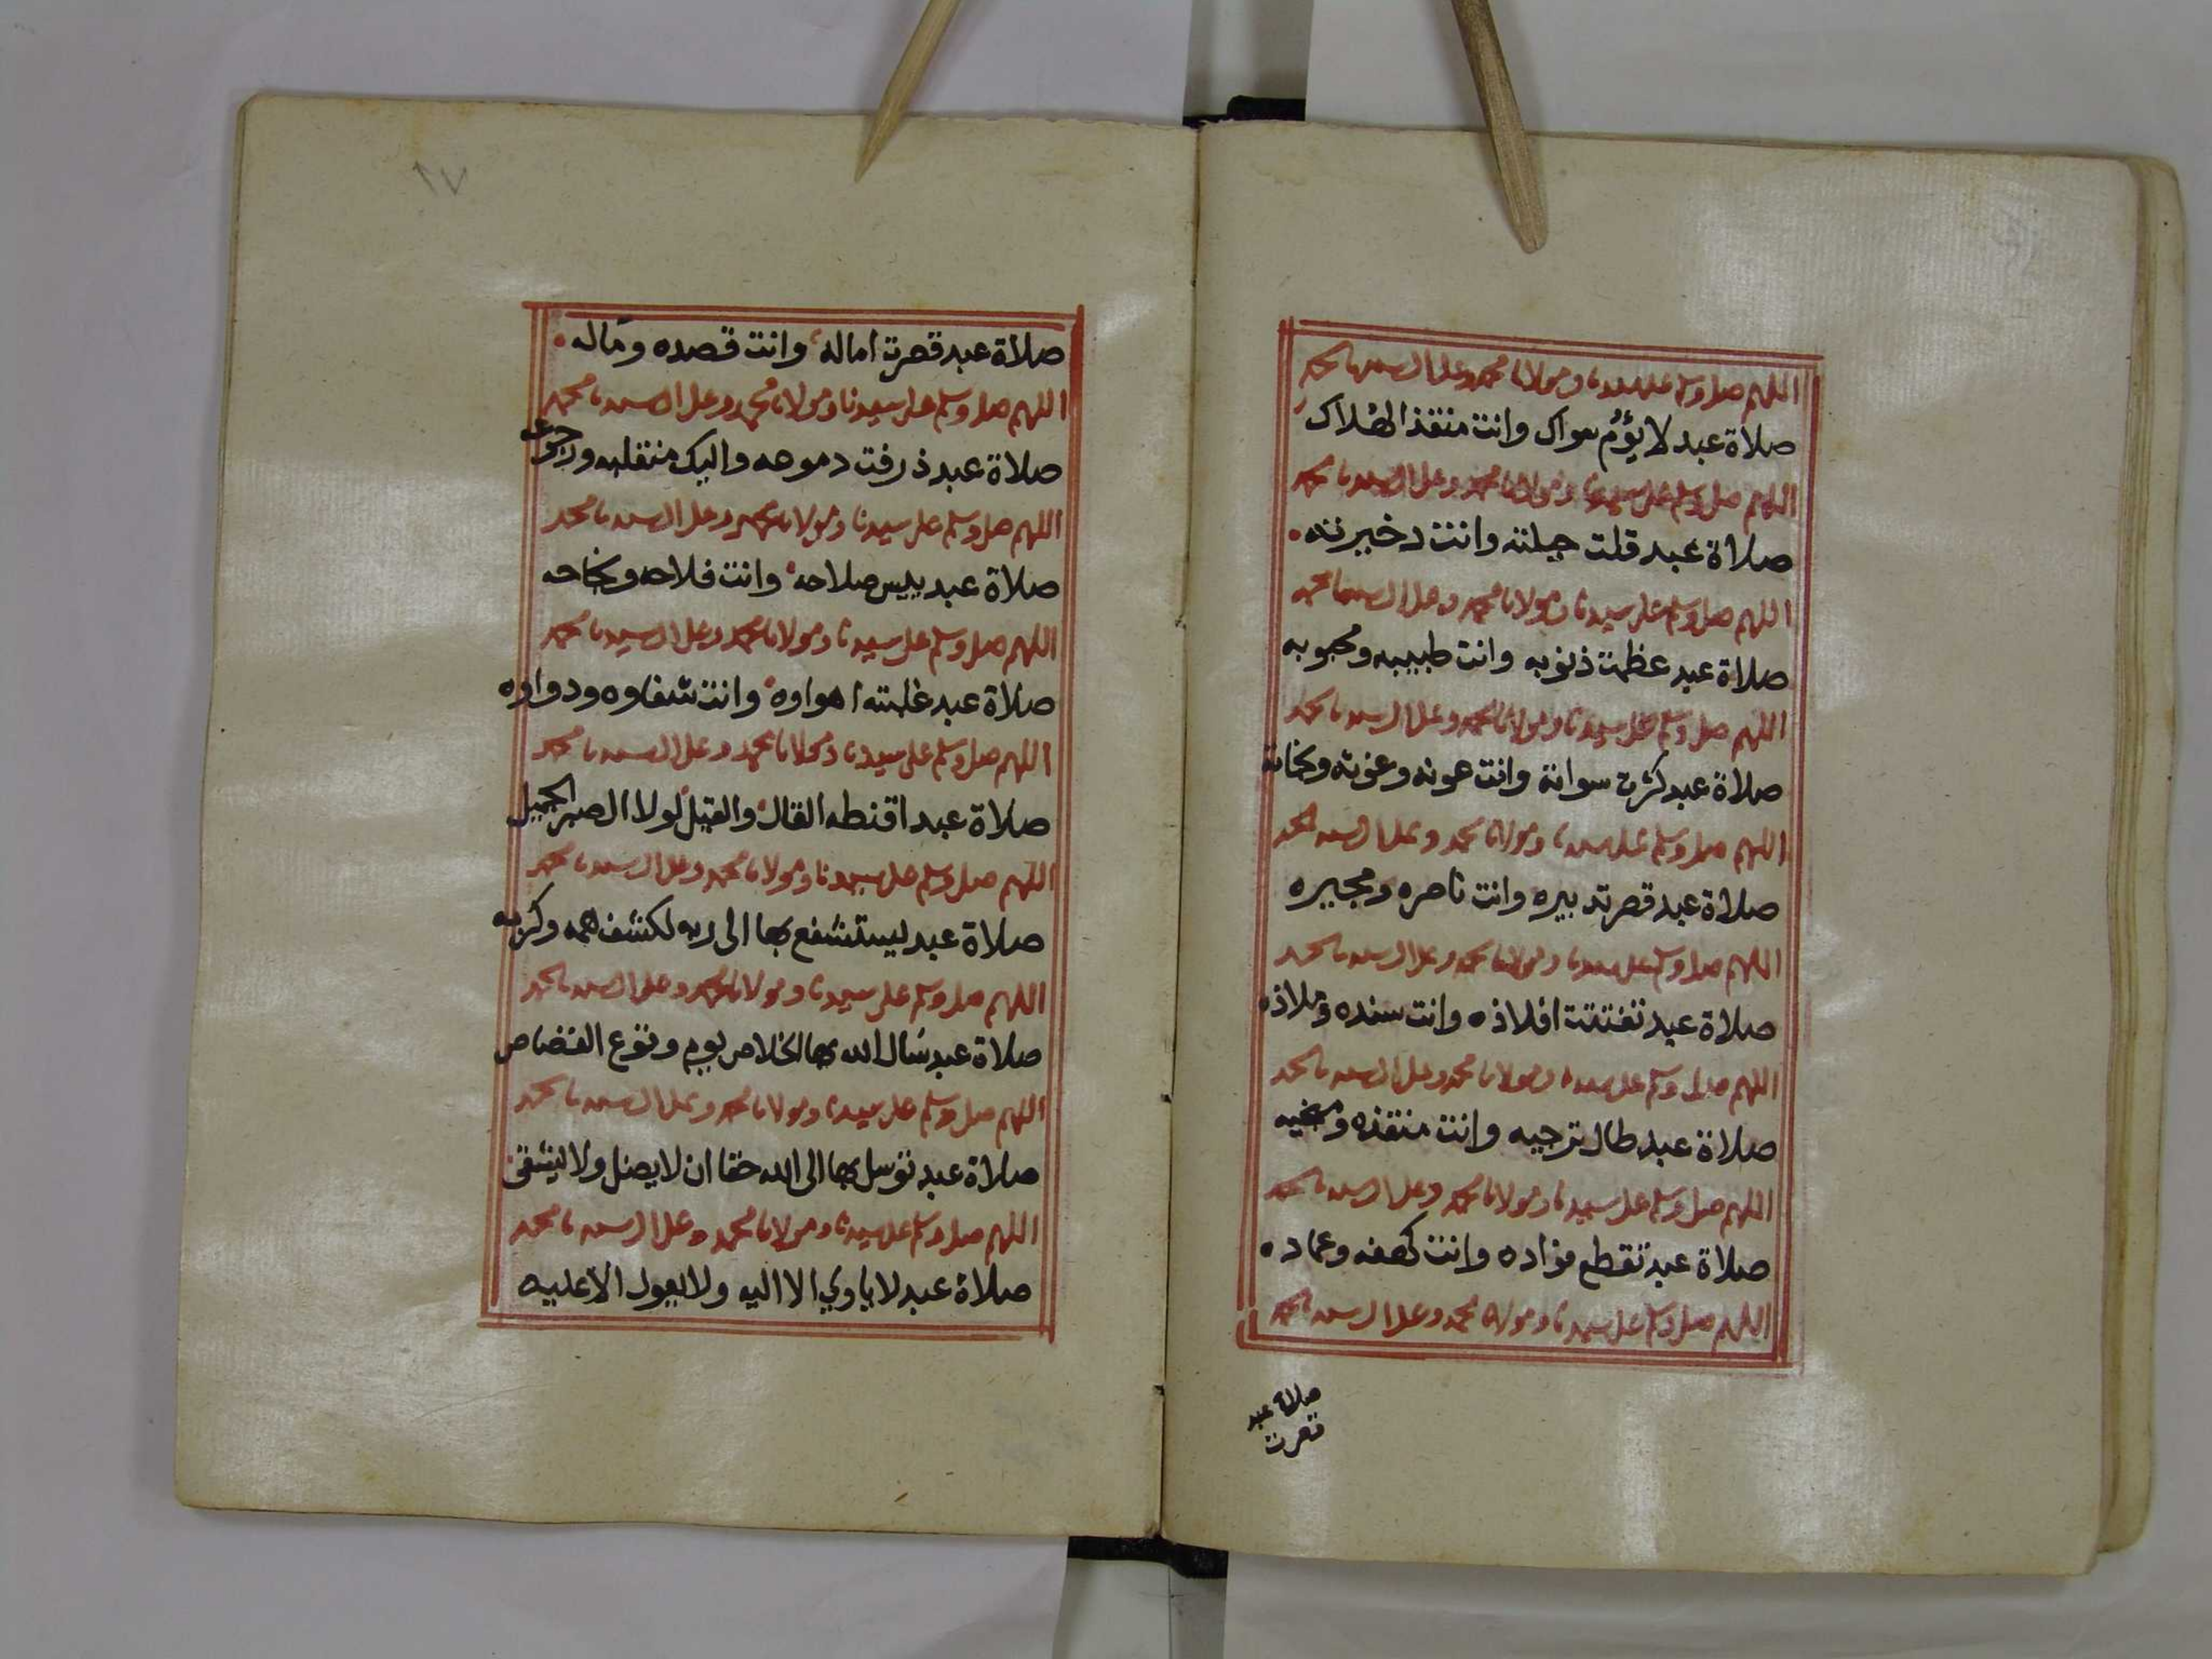 اللهم صل وسلم على سيدنا ومولانا محمد وعلى ال سيدنا محمد
صلاة عبد لا يؤم سواك وانت منقذ الهلاك
اللهم صل وسلم على سيدنا ومولانا محمد وعلى ال سيدنا محمد
صلاة عبد قلت حيلته وانت دخيرته
اللهم صل وسلم على سيدنا ومولانا محمد وعلى ال سيدنا محمد
صلاة عبد عظمت ذنوبه وانت طبيبه ومحبوبه
اللهم صل وسلم على سيدنا ومولانا محمد وعلى ال سيدنا محمد
صلاة عبد كثرت سواته وانت عونه وغوثه ونجاته
اللهم صل وسلم على سيدنا ومولانا محمد وعلى ال سيدنا محمد
صلاة عبد قصر تدبيره وانت ناصره ومجيره
اللهم صل وسلم على سيدنا ومولانا محمد وعلى ال سيدنا محمد
صلاة عبد تفتتت افلاذه وانت سنده وملاذه
اللهم صل وسلم على سيدنا ومولانا محمد وعلى ال سيدنا محمد
صلاة عبد طال ترجيه وانت منقذه ومنجيه
اللهم صل وسلم على سيدنا ومولانا محمد وعلى ال سيدنا محمد
صلاة عبد تقطع فؤاده وانت كهفه وعماده
اللهم صل وسلم على سيدنا ومولانا محمد وعلى ال سيدنا محمد
صلاة عبد
قصرت
٦٧
صلاة عبد قصرت اماله وانت قصده ومآله
اللهم صل وسلم على سيدنا ومولانا محمد وعلى ال سيدنا محمد
صلاة عبد ذرفت دموعه واليك منقلبه ورجوعه
اللهم صل وسلم على سيدنا ومولانا محمد وعلى ال سيدنا محمد
صلاة عبد ييس صلاحه وانت فلاحه ونجاحه
اللهم صل وسلم على سيدنا ومولانا محمد وعلى ال سيدنا محمد
صلاة عبد غلبته اهواوه وانت شفاوه ودواوه
اللهم صل وسلم على سيدنا ومولانا محمد وعلى ال سيدنا محمد
صلاة عبد اقنطه القال والقيل لولا الصبر الجميل
اللهم صل وسلم على سيدنا ومولانا محمد وعلى ال سيدنا محمد
صلاة عبد يستشفع بها الى ربه لكشف همه وكربه
اللهم صل وسلم على سيدنا ومولانا محمد وعلى ال سيدنا محمد
صلاة عبد سال الله بها الخلاص يوم وقوع القصاص
اللهم صل وسلم على سيدنا ومولانا محمد وعلى ال سيدنا محمد
صلاة عبد توسل بها الى الله حقا ان لا يضل ولا يشقى
اللهم صل وسلم على سيدنا ومولانا محمد وعلى ال سيدنا محمد
صلاة عبد لا ياوي الا اليه ولا يعول الا عليه